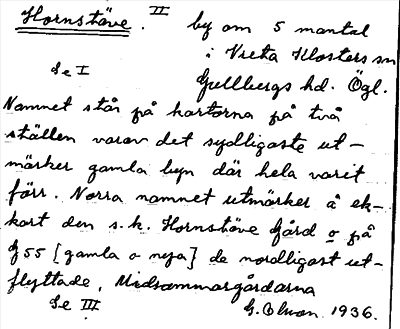 Hornstöve. II by om 5 mantal
i Vreta Klosters sn
Se I Gullbergs hd. Ögl.
Namnet står på kartorna på två
ställen varav det sydligaste ut-
märker gamla byn där hela varit
förr. Norra namnet utmärker å ek-
kart den s.k. Hornstöve Gård o på
G55 [gamla o nya] de nordligast ut-
flyttade, Midsommargårdarna
Se III G. Olson. 1936.